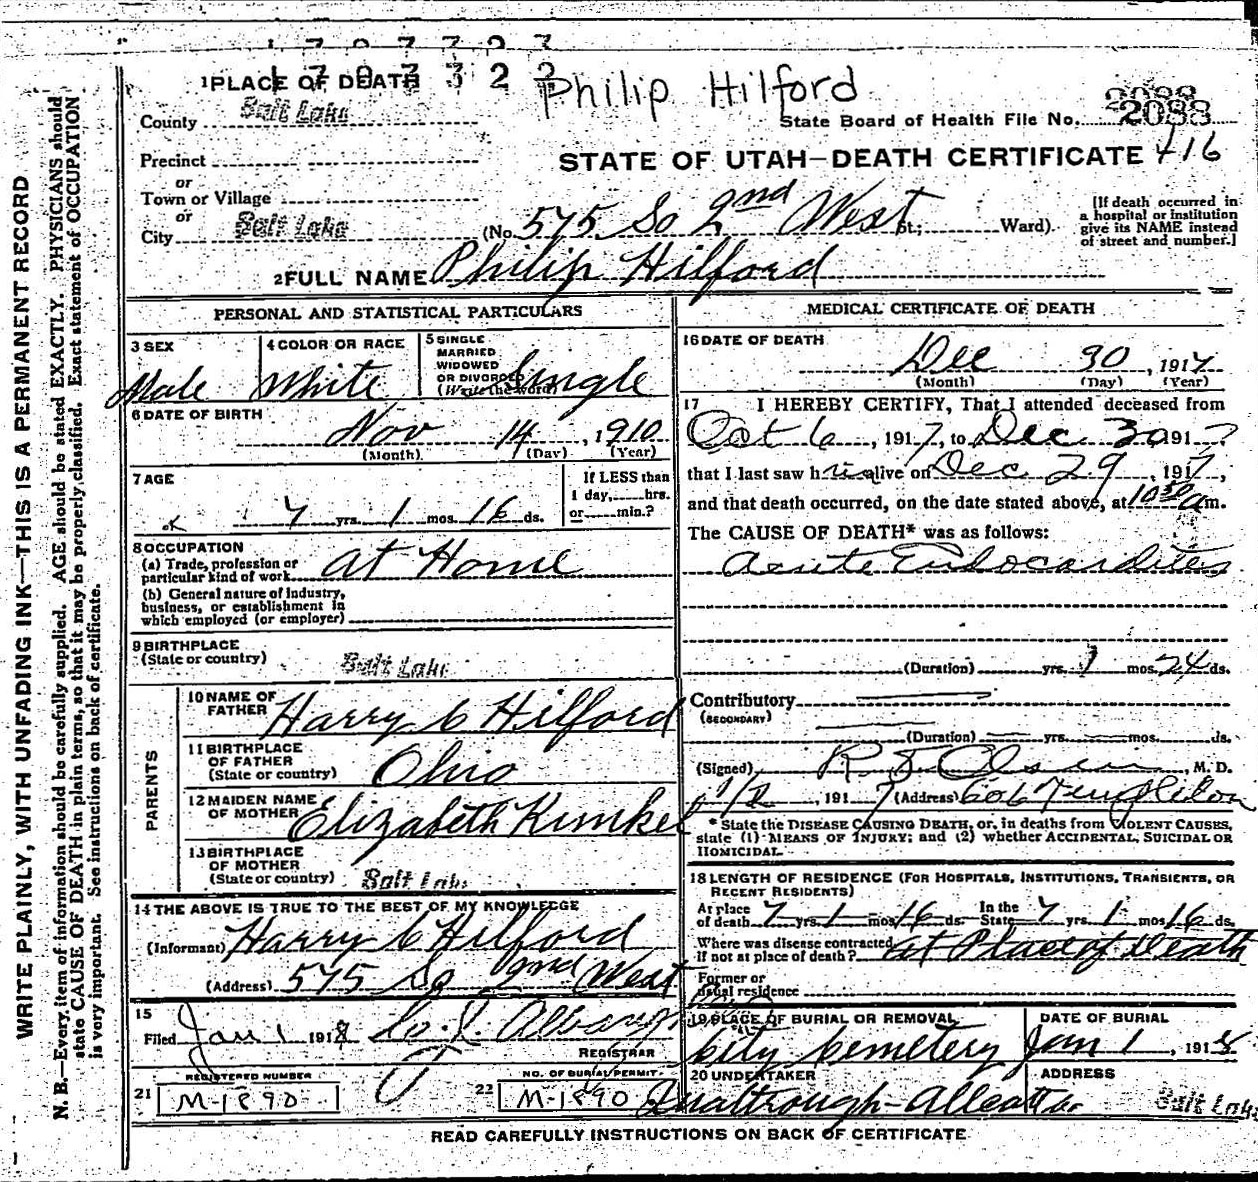 1 7 0 7 3 2 3
1 PLACE OF DEATH
1 7 0 3 3 2 2
Philip Hilford
County Salt Lake
2088
State Board of Health File No. 2088
Precinct
STATE OF UTAH—DEATH CERTIFICATE 416
or
Town or Village
or
City Salt Lake (No. 575 So 2nd West St.; Ward).
[If death occurred in a hospital or institution give its NAME instead of street and number.]
2 FULL NAME Philip Hilford
PERSONAL AND STATISTICAL PARTICULARS
3 SEX Male
4 COLOR OR RACE White
5 SINGLE MARRIED WIDOWED OR DIVORCED (Write the word) Single
6 DATE OF BIRTH
Nov 14, 1910
(Month) (Day) (Year)
7 AGE
ok 7 yrs. 1 mos. 16 ds.
If LESS than 1 day, hrs. or min.?
8 OCCUPATION
(a) Trade, profession or particular kind of work At Home
(b) General nature of industry, business, or establishment in which employed (or employer)
9 BIRTHPLACE
(State or country) Salt Lake
PARENTS
10 NAME OF FATHER Harry C Hilford
11 BIRTHPLACE OF FATHER (State or country) Ohio
12 MAIDEN NAME OF MOTHER Elizabeth Kunkel
13 BIRTHPLACE OF MOTHER (State or country) Salt Lake
14 THE ABOVE IS TRUE TO THE BEST OF MY KNOWLEDGE
(Informant) Harry C Hilford
(Address) 575 So 2nd West
15
Filed Jan 1 1918
REGISTRAR
21 REGISTERED NUMBER M-1890
22 NO. OF BURIAL PERMIT M-1890
MEDICAL CERTIFICATE OF DEATH
16 DATE OF DEATH
Dec 30, 1917
(Month) (Day) (Year)
17 I HEREBY CERTIFY, That I attended deceased from
Oct 6, 1917, to Dec. 30 1917
that I last saw him alive on Dec 29, 1917,
and that death occurred, on the date stated above, at 10:30 a m.
The CAUSE OF DEATH* was as follows:
Acute Endocarditis
(Duration) yrs. 1 mos. 24 ds.
Contributory
(SECONDARY)
(Duration) yrs. mos. ds.
(Signed) Olsen, M. D.
, 1917 (Address) 606 Templeton
* State the DISEASE CAUSING DEATH, or, in deaths from VIOLENT CAUSES, state (1) MEANS OF INJURY; and (2) whether ACCIDENTAL, SUICIDAL OR HOMICIDAL.
18 LENGTH OF RESIDENCE (FOR HOSPITALS, INSTITUTIONS, TRANSIENTS, OR RECENT RESIDENTS)
At place of death 7 yrs. 1 mos. 16 ds. In the State 7 yrs. 1 mos. 16 ds.
Where was disease contracted if not at place of death? at Place of Death
Former or usual residence
19 PLACE OF BURIAL OR REMOVAL
City Cemetery
DATE OF BURIAL
Jan 1, 1918
20 UNDERTAKER
ADDRESS
Salt Lake
READ CAREFULLY INSTRUCTIONS ON BACK OF CERTIFICATE
WRITE PLAINLY, WITH UNFADING INK—THIS IS A PERMANENT RECORD
N. B.—Every item of information should be carefully supplied. AGE should be stated EXACTLY. PHYSICIANS should
state CAUSE OF DEATH in plain terms, so that it may be properly classified. Exact statement of OCCUPATION
is very important. See instructions on back of certificate.